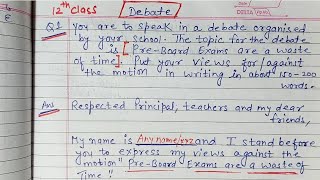 12th class
Debate
Q1 you are to speak in a debate organised
by your school. The topic for the debate
is [Pre-Board Exams are a waste
of time]. Put your views for/against
the motion in writing in about 150-200
words.
Ans Respected Principal, teachers and my dear
friends,
My name is Any name/xyz and I stand before
you to express my views against the
motion "Pre-Board Exams are a waste of
Time"